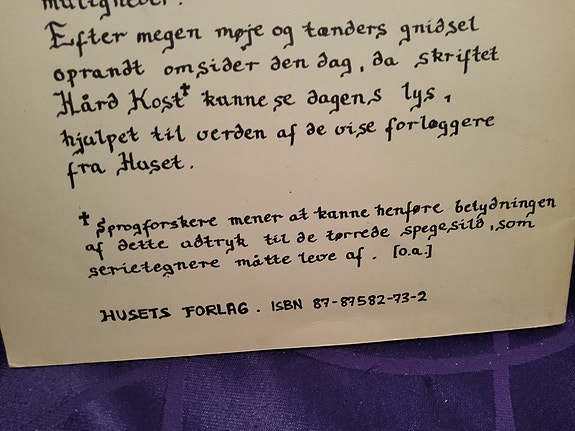 muligheder.
Efter megen møje og tænders gnidsel
oprandt omsider den dag, da skriftet
Hård Kost✝ kunne se dagens lys,
hjulpet til verden af de vise forlæggere
fra Huset.
✝ Sprogforskere mener at kunne henføre betydningen
af dette udtryk til de tørrede spegesild, som
serietegnere måtte leve af. [o.a.]
HUSETS FORLAG. ISBN 87-87582-73-2